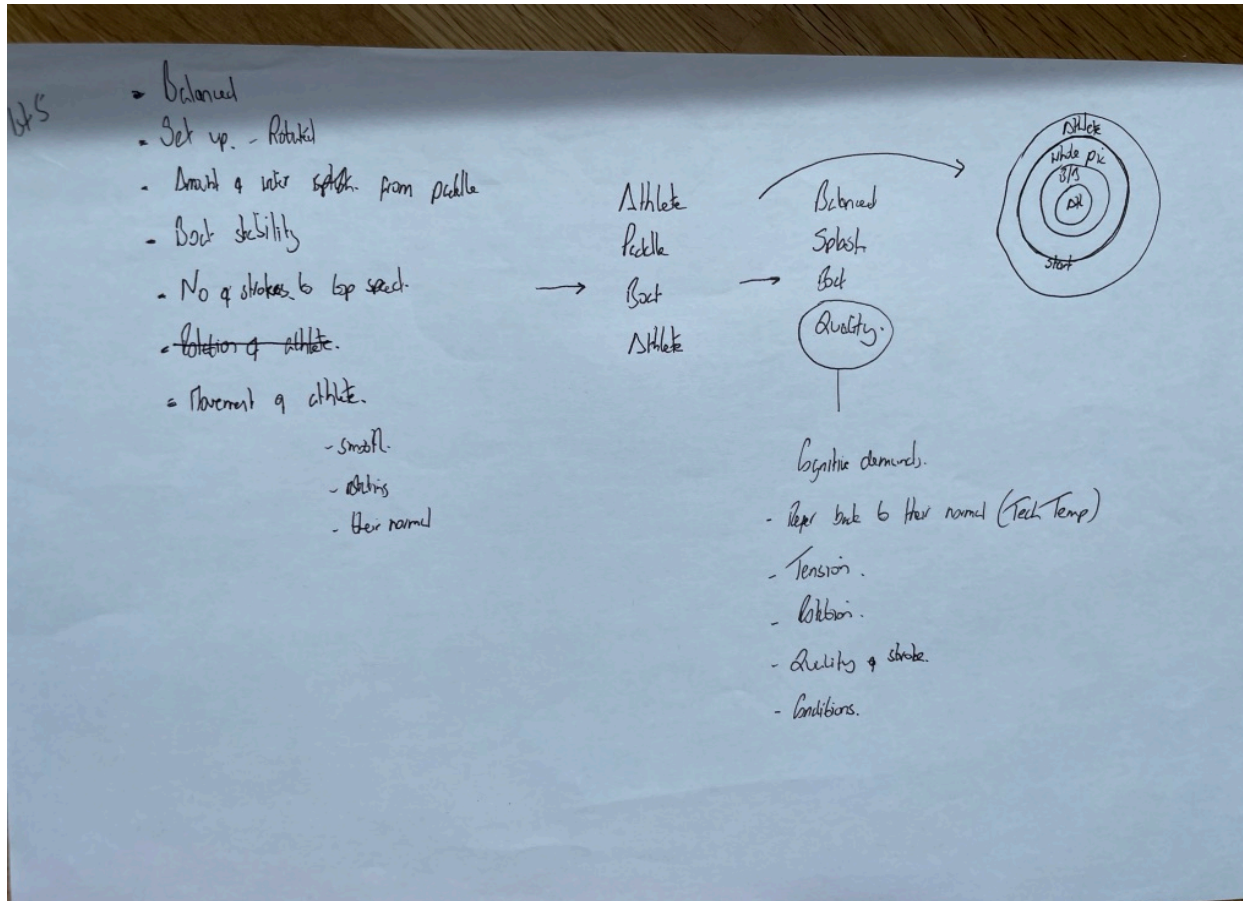 - Balanced
- Set up. - Rotated
- Amount of water splash. from paddle
- Boat stability
- No of strokes to top speed.
- Rotation of athlete.
- Movement of athlete.
- smooth.
- their normal
Athlete
Paddle
Boat
Athlete
Balanced
Splash
Boat
Quality.
Cognitive demands.
- Refer back to their normal (Tech Temp)
- Tension.
- Rotation.
- Quality of stroke.
- Conditions.
Athlete
Whole pic
Start